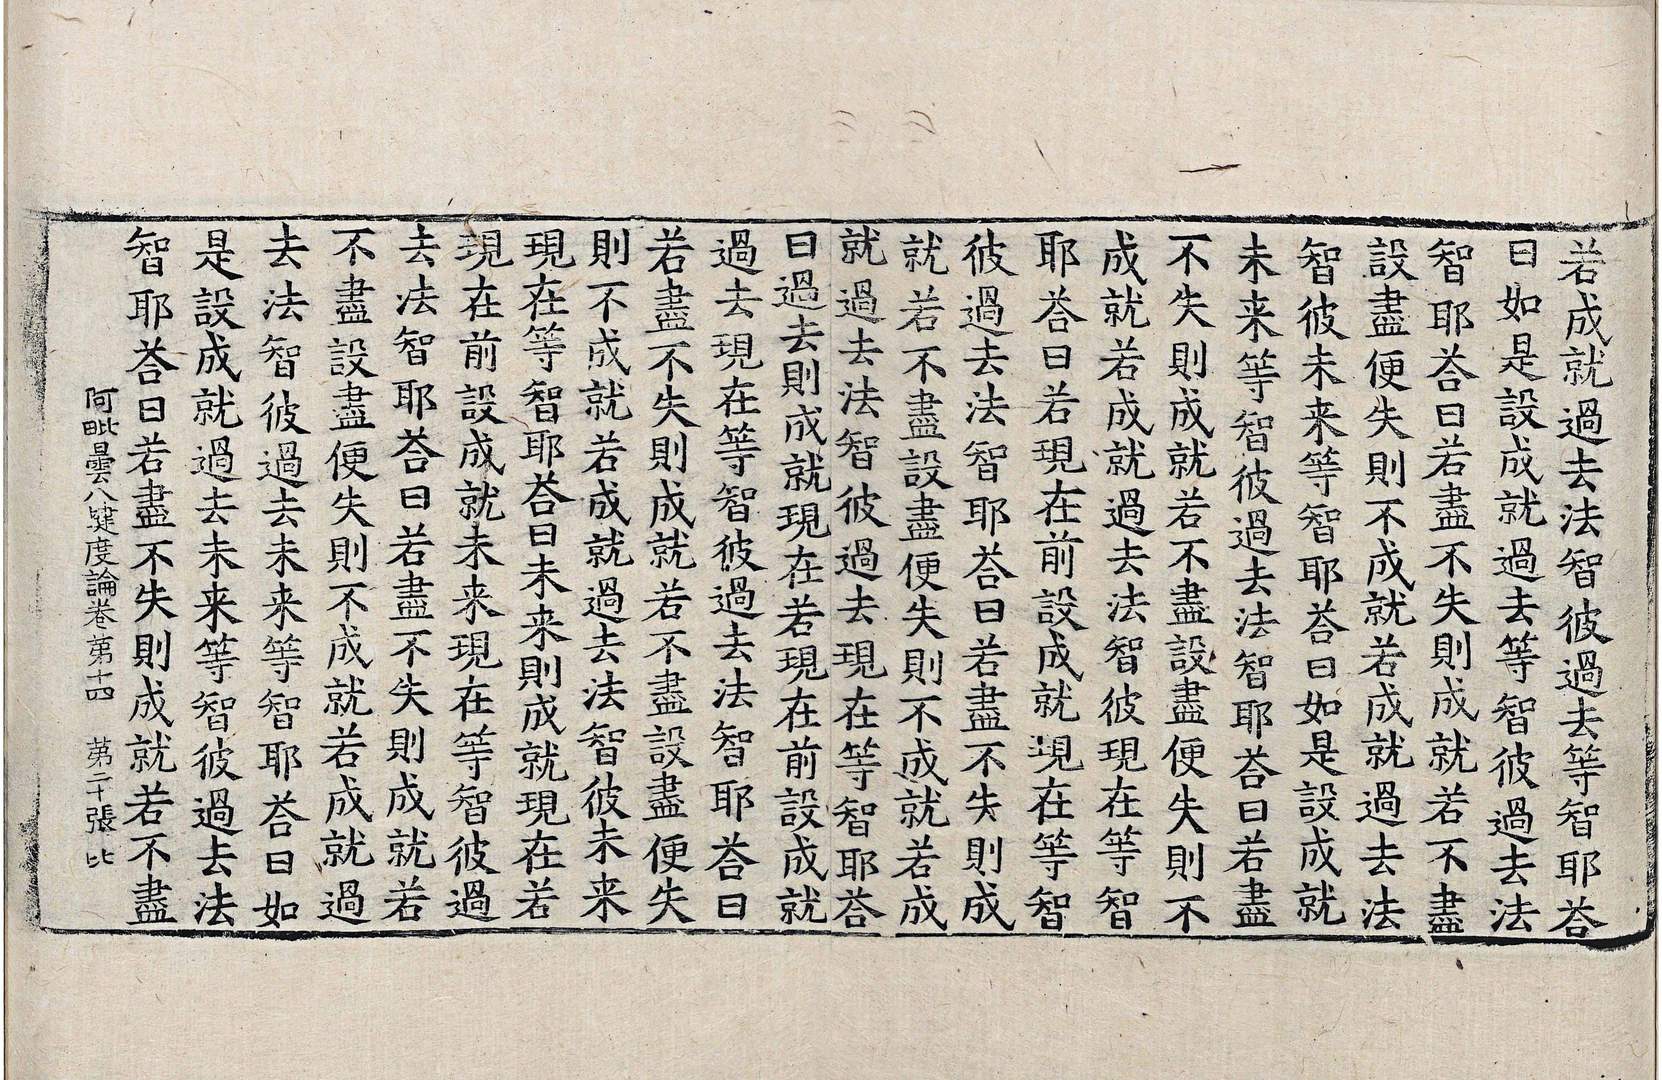 若成就過去法智彼過去等智耶荅
曰如是設成就過去等智彼過去法
智耶荅曰若盡不失則成就若不盡
設盡便失則不成就若成就過去法
智彼未来等智耶荅曰如是設成就
未来等智彼過去法智耶荅曰若盡
不失則成就若不盡設盡便失則不
成就若成就過去法智彼現在等智
耶荅曰若現在前設成就現在等智
彼過去法智耶荅曰若盡不失則成
就若不盡設盡便失則不成就若成
就過去法智彼過去現在等智耶荅
曰過去則成就現在若現在前設成就
過去現在等智彼過去法智耶荅曰
若盡不失則成就若不盡設盡便失
則不成就若成就過去法智彼未来
現在等智耶荅曰未来則成就現在若
現在前設成就未来現在等智彼過
去法智耶荅曰若盡不失則成就若
不盡設盡便失則不成就若成就過
去法智彼過去未来等智耶荅曰如
是設成就過去未来等智彼過去法
智耶荅曰若盡不失則成就若不盡
阿毗曇八犍度論卷第十四 第二十張 比